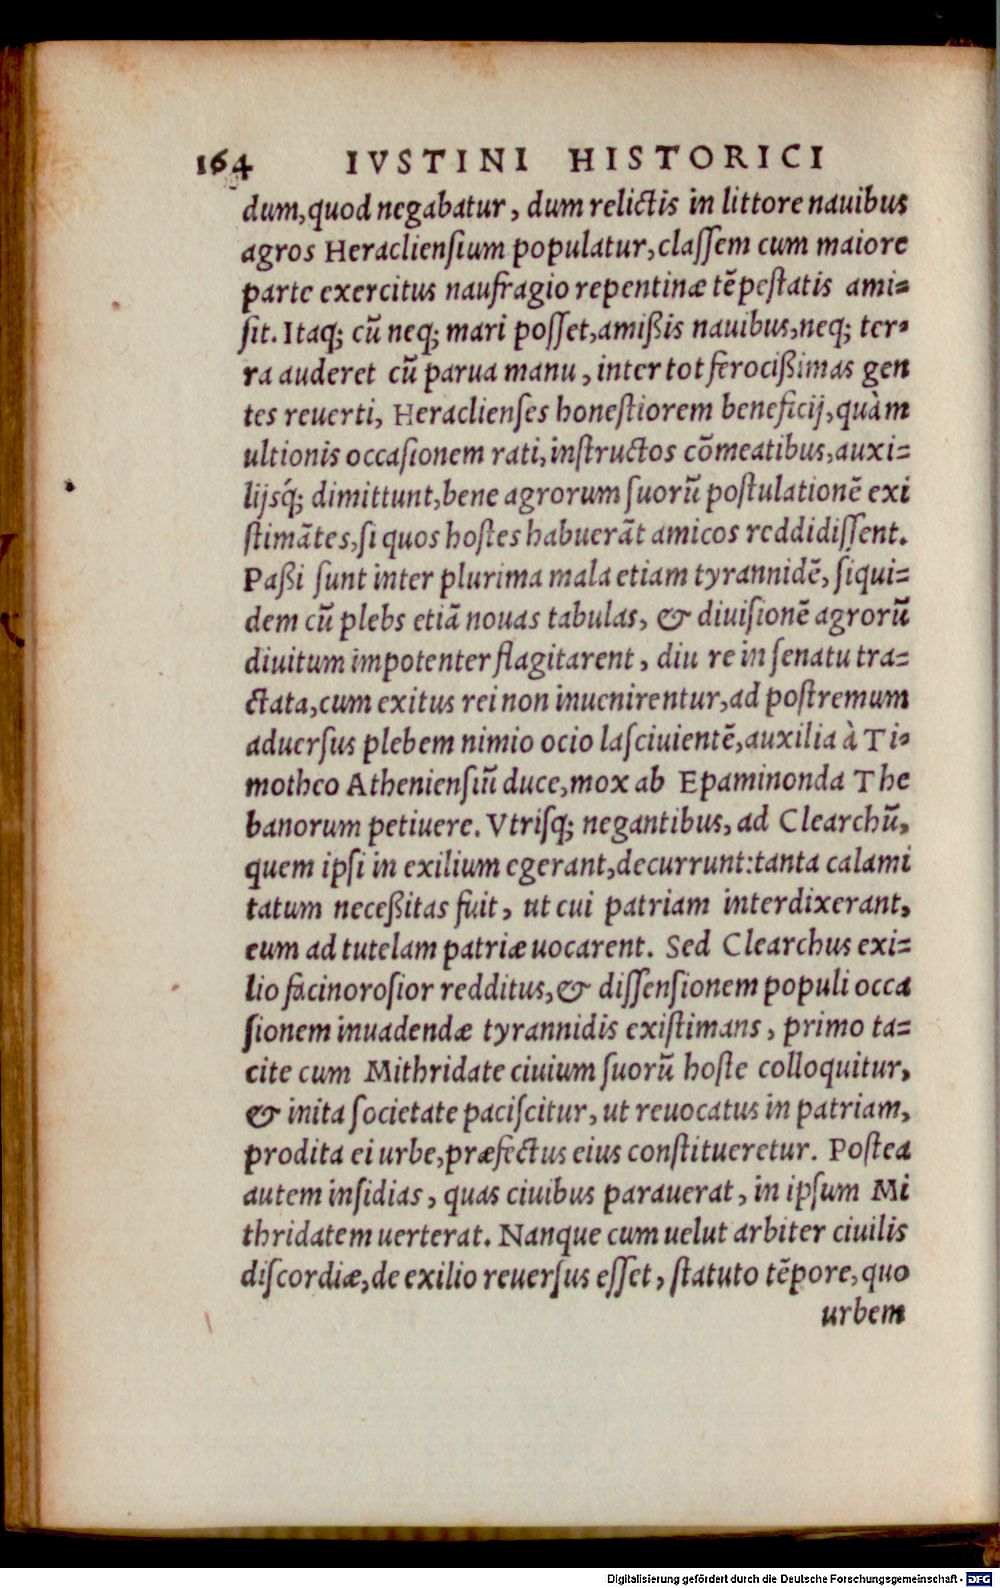 164 IVSTINI HISTORICI
dum, quod negabatur, dum relictis in littore nauibus
agros Heracliensium populatur, classem cum maiore
parte exercitus naufragio repentinæ tẽpestatis ami=
sit. Itaq; cũ neq; mari posset, amißis nauibus, neq; ter=
ra auderet cũ parua manu, inter tot ferocißimas gen
tes reuerti, Heraclienses honestiorem beneficij, quàm
ultionis occasionem rati, instructos cõmeatibus, auxi=
lijsq́; dimittunt, bene agrorum suorũ postulationẽ exi
stimãtes, si quos hostes habuerãt amicos reddidissent.
Paßi sunt inter plurima mala etiam tyrannidẽ, siqui=
dem cũ plebs etiã nouas tabulas, & diuisionẽ agrorũ
diuitum impotenter flagitarent, diu re in senatu tra=
ctata, cum exitus rei non inuenirentur, ad postremum
aduersus plebem nimio ocio lasciuientẽ, auxilia à Ti=
motheo Atheniensiũ duce, mox ab Epaminonda The
banorum petiuere. Vtrisq; negantibus, ad Clearchũ,
quem ipsi in exilium egerant, decurrunt: tanta calami
tatum neceßitas fuit, ut cui patriam interdixerant,
eum ad tutelam patriæ uocarent. Sed Clearchus exi=
lio facinorosior redditus, & dissensionem populi occa
sionem inuadendæ tyrannidis existimans, primo ta=
cite cum Mithridate ciuium suorũ hoste colloquitur,
& inita societate paciscitur, ut reuocatus in patriam,
prodita ei urbe, præfectus eius constitueretur. Postea
autem insidias, quas ciuibus parauerat, in ipsum Mi
thridatem uerterat. Nanque cum uelut arbiter ciuilis
discordiæ, de exilio reuersus esset, statuto tẽpore, quo
urbem
Digitalisierung gefördert durch die Deutsche Forschungsgemeinschaft - DFG